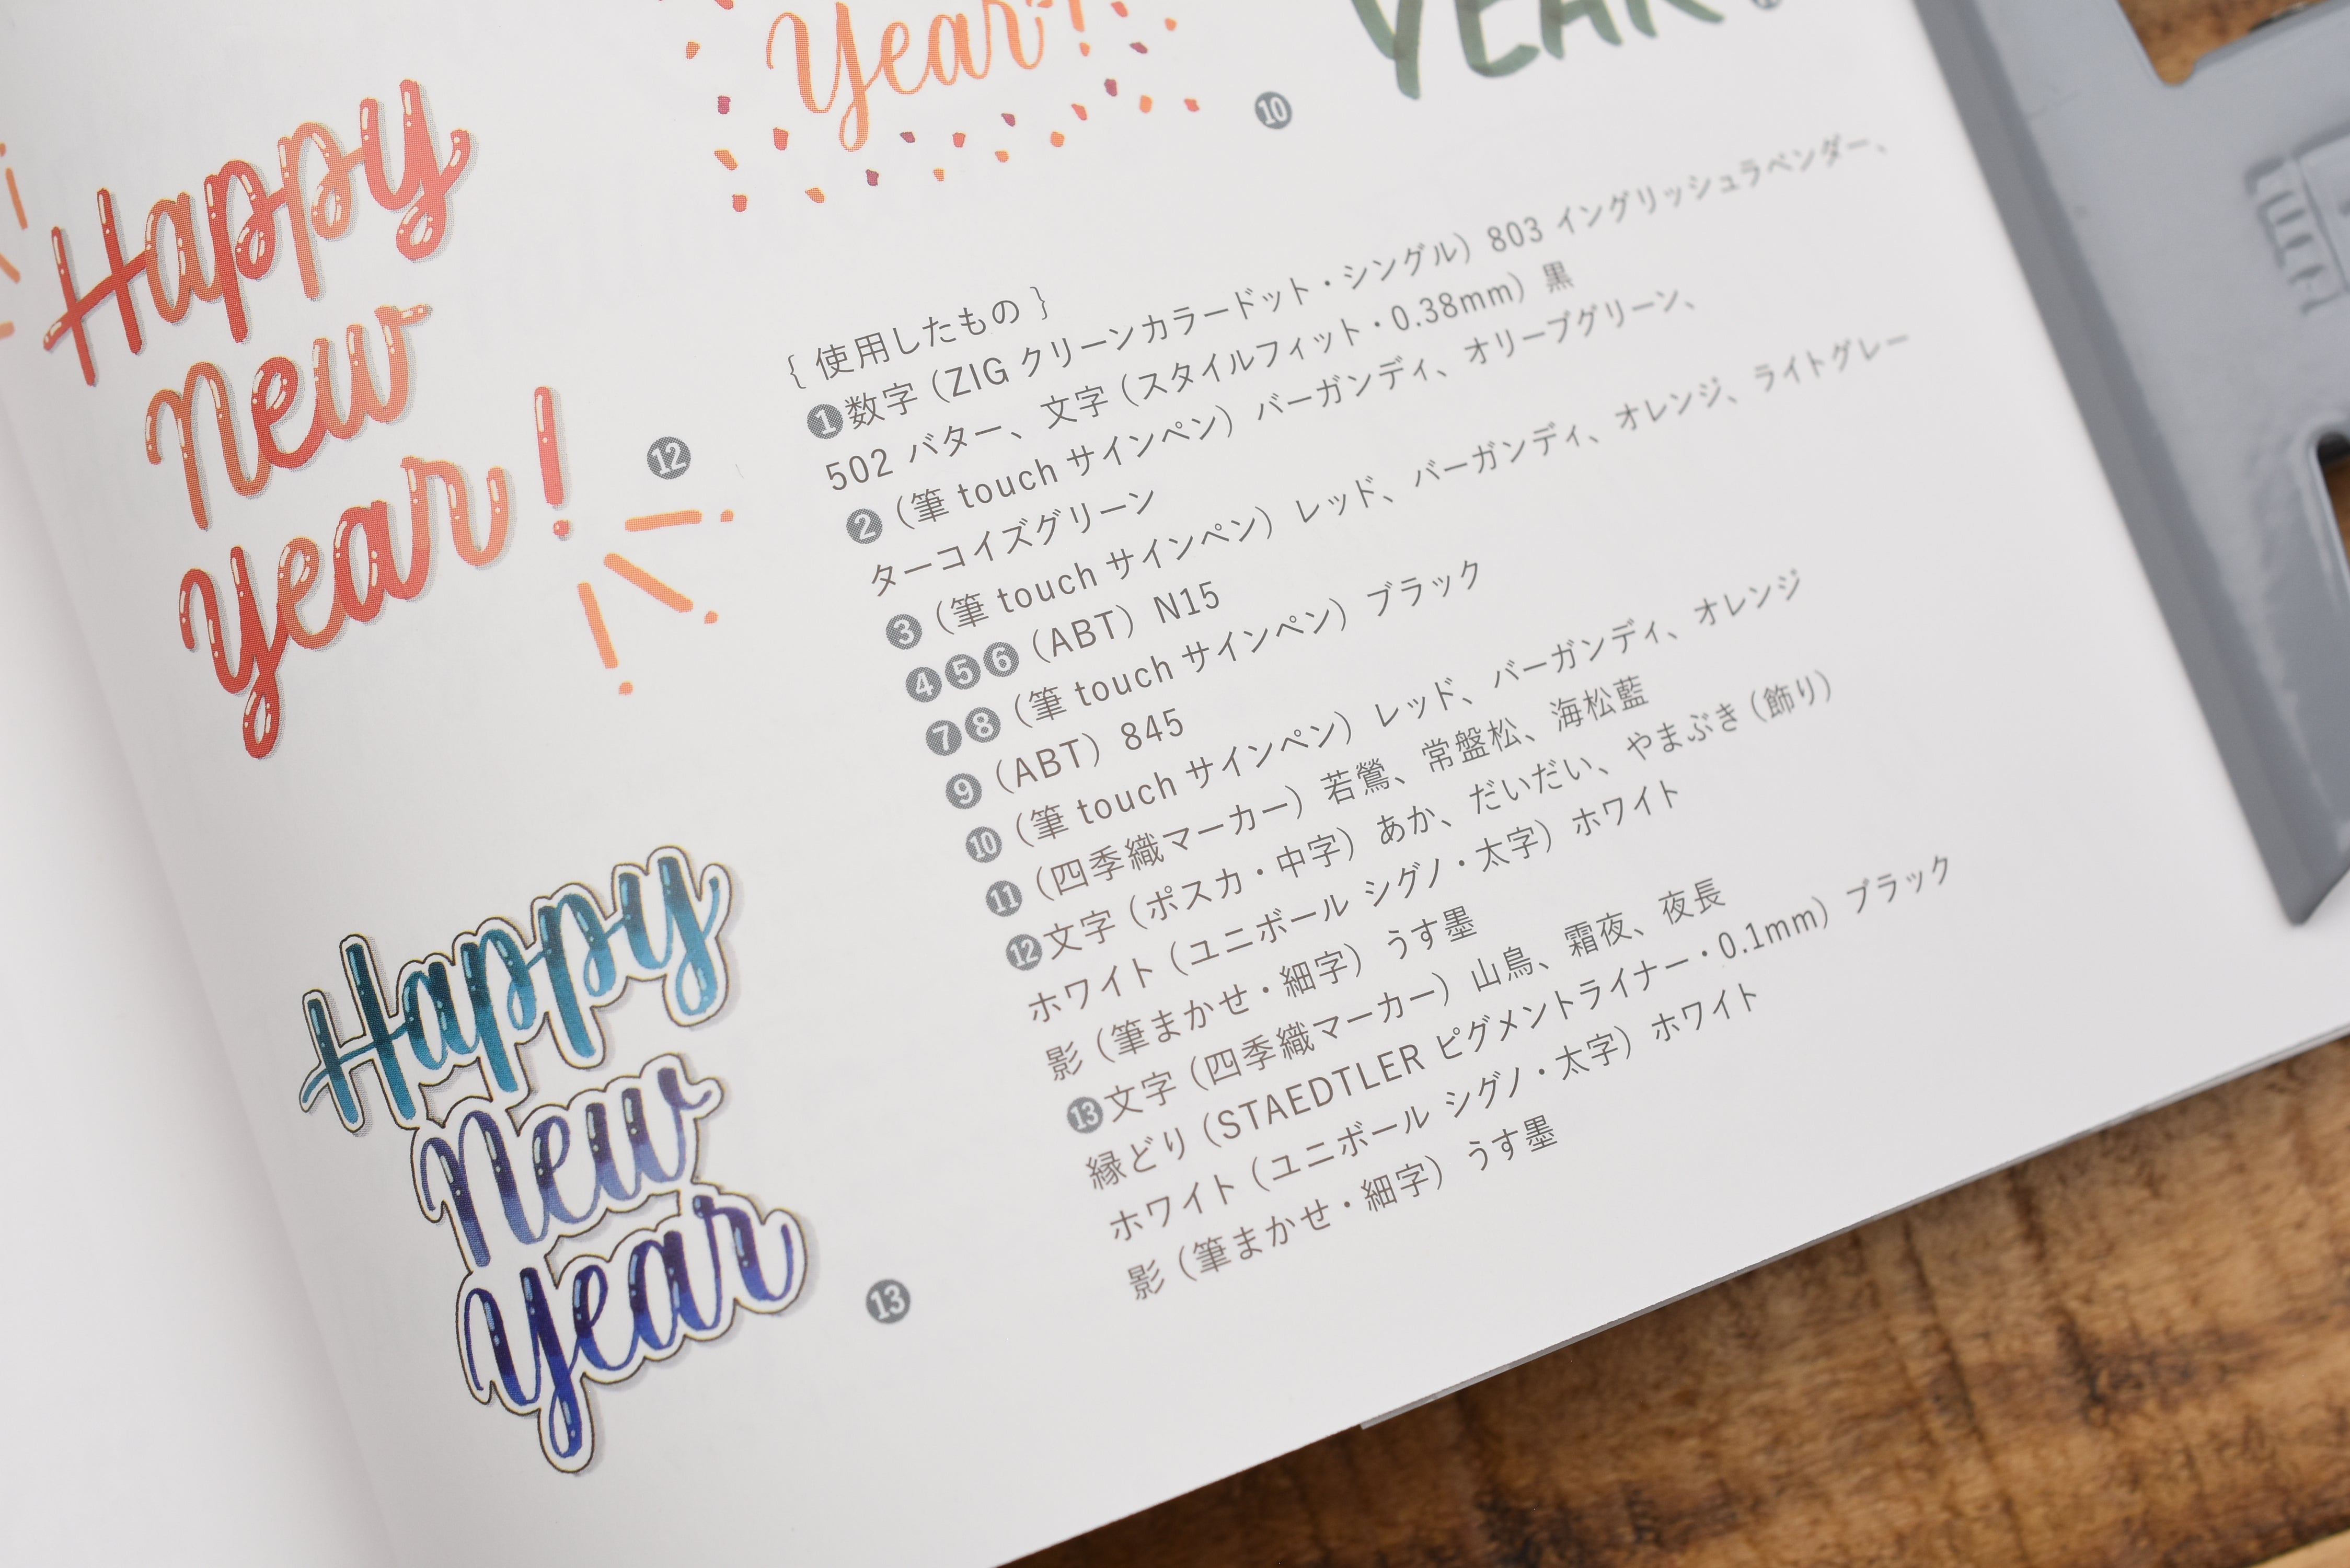 Year!
YEAR
10
Happy
New
Year!
12
{ 使用したもの }
❶数字（ZIG クリーンカラードット・シングル）803 イングリッシュラベンダー、
502 バター、文字（スタイルフィット・0.38mm）黒
❷（筆 touch サインペン）バーガンディ、オリーブグリーン、
ターコイズグリーン
❸（筆 touch サインペン）レッド、バーガンディ、オレンジ、ライトグレー
❹❺❻（ABT）N15
❼❽（筆 touch サインペン）ブラック
❾（ABT）845
❿（筆 touch サインペン）レッド、バーガンディ、オレンジ
⓫（四季織マーカー）若鶯、常盤松、海松藍
⓬文字（ポスカ・中字）あか、だいだい、やまぶき（飾り）
ホワイト（ユニボール シグノ・太字）ホワイト
影（筆まかせ・細字）うす墨
⓭文字（四季織マーカー）山鳥、霜夜、夜長
縁どり（STAEDTLER ピグメントライナー・0.1mm）ブラック
ホワイト（ユニボール シグノ・太字）ホワイト
影（筆まかせ・細字）うす墨
Happy
New
Year
13